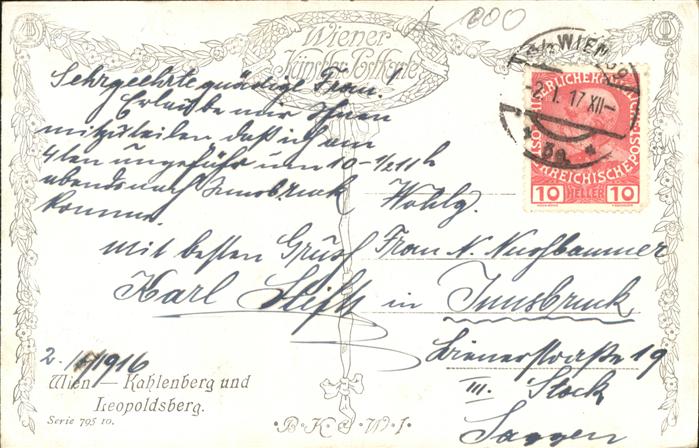 200
Wiener
Künstler-Postkarte
Sehrgeehrte gnädige Frau!
Erlaube mir Ihnen
mitzuteilen daß ich am
4ten ungefähr um 10-½11h
abends nach Innsbruck
komme.
mit besten Gruß
Karl
Wohlg.
Frau N. Nussbaumer
in Innsbruck
Bienerstraße 19
III. Stock
Saggen
2./1/1916
Wien — Kahlenberg und
Leopoldsberg.
Serie 795 10.
B·K·W·I·
WIEN
-2.I.17 XII-
10 HELLER 10